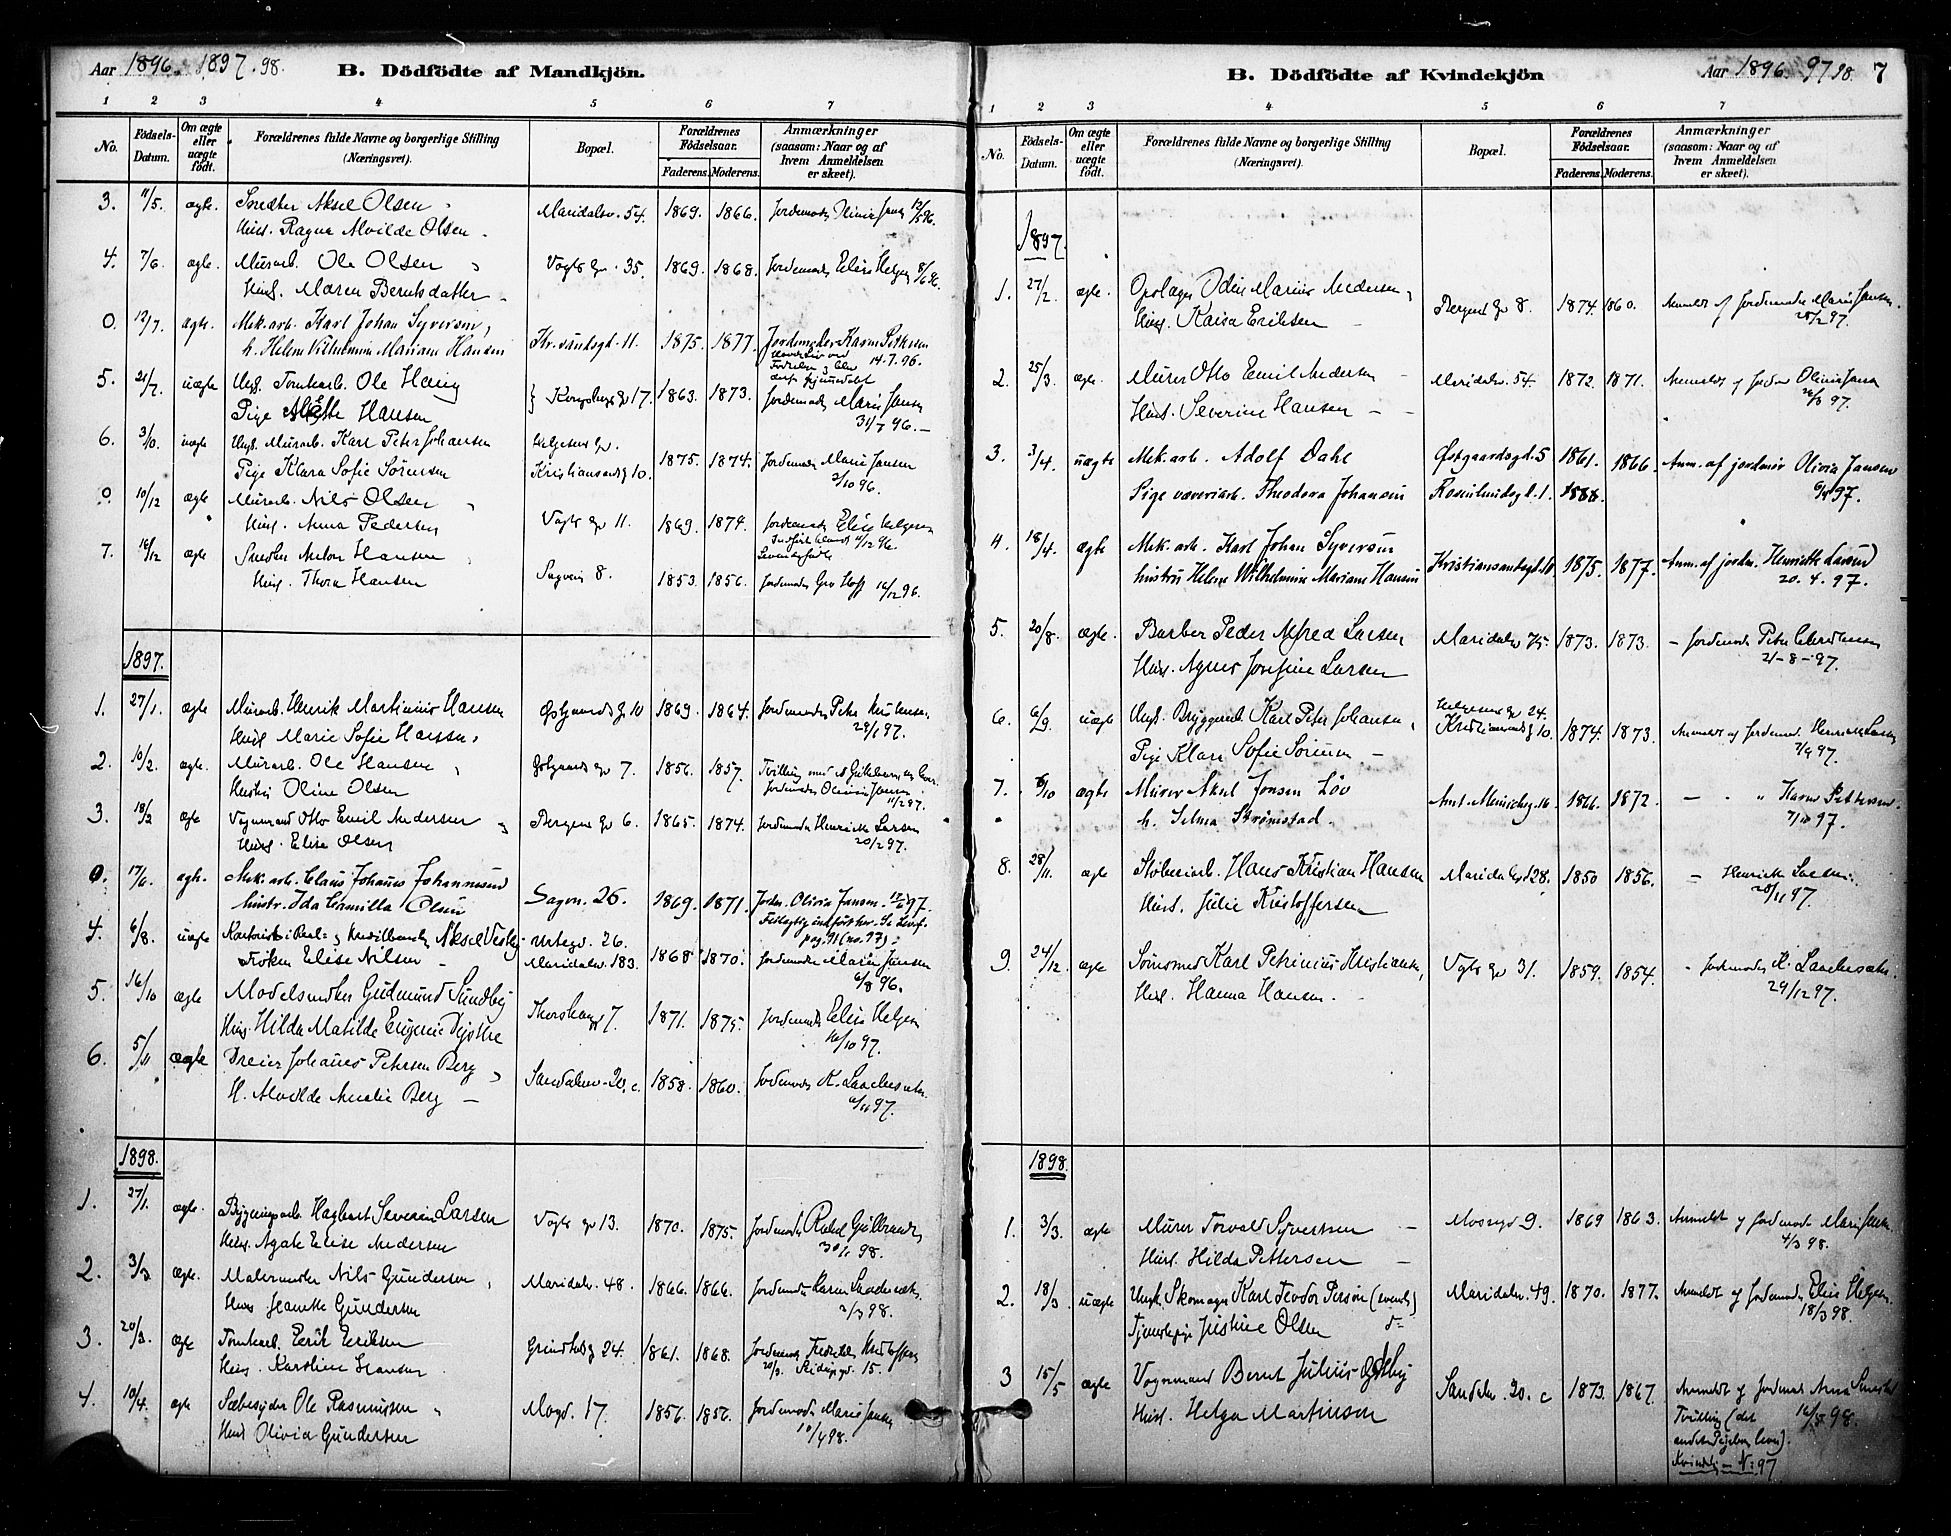 Aar 1896. 1897. 98.
B. Dödfödte af Mandkjön.
1 2 3 4 5 6 7
No.
Födsels-Datum.
Om ægte eller uægte födt.
Forældrenes fulde Navne og borgerlige Stilling (Næringsvei).
Bopæl.
Forældrenes Födselsaar.
Faderens. Moderens.
Anmærkninger (saasom: Naar og af hvem Anmeldelsen er skeet).
3. 11/5. ægte. Aksel Olsen Maridalsv. 54. 1869. 1866. Jordemoder Olivia 12/5 96.
Hust. Ragna Alvilde Olsen
4. 7/6. ægte. Murarb. Ole Olsen Vogts gd. 35. 1869. 1868. Jordemoder Elise Helgesen 8/6 96.
Hust. Maren Berntsdatter
0. 12/7. ægte. Mek.arb. Karl Johan Syversen, Kr.sandsgd. 11. 1875. 1877. Jordemoder Karen Pettersen
h. Helene Vilhelmine Mariane Hansen 14.7.96.
5. 21/7. uægte Ungk. Tomtearb. Ole Haug Kongsbergs gd 17. 1863. 1873. Jordemoder Marie Jansen
Pige Mathe Hansen 31/7 96.
6. 3/10. uægte Ungk. Murarb. Karl Peter Johansen Helgesens gd.
Pige Klara Sofie Sörensen Kristiansandsg 10. 1875. 1874. Jordemoder Marie Jansen
3/10 96.
0. 10/12 ægte Murarb. Nils Olsen
Hust. Anna Pedersen Vogts gd 11. 1869. 1874. Jordemoder Elise Helgesen
7. 16/12 ægte Smed Anton Hansen
Hust. Thora Hansen Sagvein 8. 1853. 1856. Jordemoder Gro Hoff 16/12 96.
1897.
1. 27/1. ægte Murarb. Henrik Martinius Hansen Østgaards g 10 1869. 1864. Jordemoder Petra
Hust Marie Sofie Hansen 29/1 97.
2. 10/2. ægte. Murarb. Ole Hansen Østgaards gd 7. 1856. 1857. Tvilling med
Hustru Oline Olsen Jordemoder Olivia Jansen 11/2 97.
3. 18/2 ægte Vognmand Otto Emil Andersen Bergens gd 6. 1865. 1874. Jordemoder Henriette Larsen
Hust. Elise Olsen 20/2 97.
0. 17/6. ægte. Mek.arb. Claus Johanes Johannesen
hustr. Ida Camilla Olsen Sagvn. 26. 1869. 1871. Jordm. Olivia Jansen. 18/6 97.
Feilagtig indført her. Se Levf.
pag. 91 (no. 97).
4. 6/8. uægte Aksel Vestby Urtegd. 26.
Frøken Elise Nilsen Maridalsv. 183. 1868 1870. Jordemoder Marie Jansen
6/8 96.
5. 16/10 ægte Modelsnedker Gudmund Sundby
Hus. Hilda Matilde Eugenie Thorshaug 7. 1871. 1875. Jordemoder Elise Helgesen
16/10 97.
6. 5/11 ægte Dreier Johanes Petersen Berg
H. Alvilde Amalie Berg Sandakerv. 20. c. 1858. 1860. Jordemoder K. Laachesæter
6/11 97.
1898.
1. 27/1. ægte. Bygningsarb. Hagbart Severin Larsen Vogts gd 13. 1870. 1875. Jordemoder
Hust. Agate Elise Andersen 30/1 98.
2. 3/3 ægte. Malermester Nils Gundersen, Maridalsv. 48. 1866. 1866. Jordemoder Karen
Hust Jeanette Gundersen 3/3 98.
3. 20/3. ægte Tomtearb. Eerik Eeriksen Gründtvigs g 24. 1861. 1868. Jordemoder Kristoffersen
Hust. Karoline Hansen 20/3. 15.
4. 10/4. ægte Sæbesyder Ole Rasmussen Mogd. 17. 1856. 1856. Jordemoder Marie Jansen
Hust Olivia Gundersen 10/4 98.
B. Dödfödte af Kvindekjön
Aar 1896. 97. 98. 7
1 2 3 4 5 6 7
No.
Födsels-Datum.
Om ægte eller uægte födt.
Forældrenes fulde Navne og borgerlige Stilling (Næringsvei).
Bopæl.
Forældrenes Födselsaar.
Faderens. Moderens.
Anmærkninger (saasom: Naar og af hvem Anmeldelsen er skeet).
1897.
1. 27/2. ægte. Opslager Odin Marius Andersen, Bergens gd 8. 1874. 1860. Anmeldt af Jordemoder Marie Jansen
Hust. Kaisa Eriksen 28/2 97.
2. 25/3. ægte. Murer Otto Emil Andersen Maridalsv. 54. 1872. 1871. Anmeldt af Jordm Olivia Jansen
Hust. Severine Hansen 26/3 97.
3. 3/4. uægte Mek.arb. Adolf Dahl Østgaardsgd. 5 1861. 1866. Anm. af jordmor Olivia Jansen
Pige væveriarb. Theodora Johansen Rosenlundsgd. 1. 6/4 97.
4. 18/4. ægte Mek.arb. Karl Johan Syversen
hustru Helene Wilhelmine Mariane Hansen Kristiansandsgd. 11. 1875. 1877. Anm. af jordm. Henriette Larsen
20. 4. 97.
5. 20/8. ægte. Barber Peder Alfred Larsen Maridalsv 75. 1873. 1873. - Jordemoder Petra
Hust. Agnes Josefine Larsen 21-8-97.
6. 6/9. uægte Ungk. Bryggeriarb. Karl Peter Johansen, Helgesens gd 24.
Kristiansandsg 10. 1874. 1873. Anmeldt af Jordemod. Henriette Larsen
Pige Klara Sofie Sörensen 7/9 97.
7. 6/10 ægte Murer Aksel Jonsen Löv Ant. Meinichsg. 16 1866. 1872. - " Karen Pettersen.
h. Selma Strömstad. 7/10 97.
8. 28/11. ægte Støberiarb. Hans Kristian Hansen Maridalsv 128. 1850 1856. Henriette Larsen
Hust. Julie Kristoffersen 28/11 97.
9. 24/12. ægte Karl Petrinius Kristiansen, Vogts gd 31. 1859. 1854. Jordemoder K. Laachesæter.
Hust. Hanna Hansen. 29/12 97.
1898.
1. 3/3. ægte Murer Torvald Syvertsen Mossegd 9. 1869 1863. Anmeldt af Jordemoder Marie Jansen
Hust. Hilda Pettersen 4/3 98.
2. 18/3. uægte Ungk. Skomager Karl Teodor Person (svensk) Maridalsv. 49. 1870. 1877. Anmeldt af Jordemoder Elise Helgesen
Tjenestepige Justine Olsen 18/3 98.
3 15/5 ægte Vognmand Bernt Julius Østby Sandakerv. 20. c 1873. 1867. Anmeldt af Jordemod Anna
Hust. Helga Martinson 16/5 98.
Tvilling (det
andet Pigebarn lever).
Kvindekj. N: 97